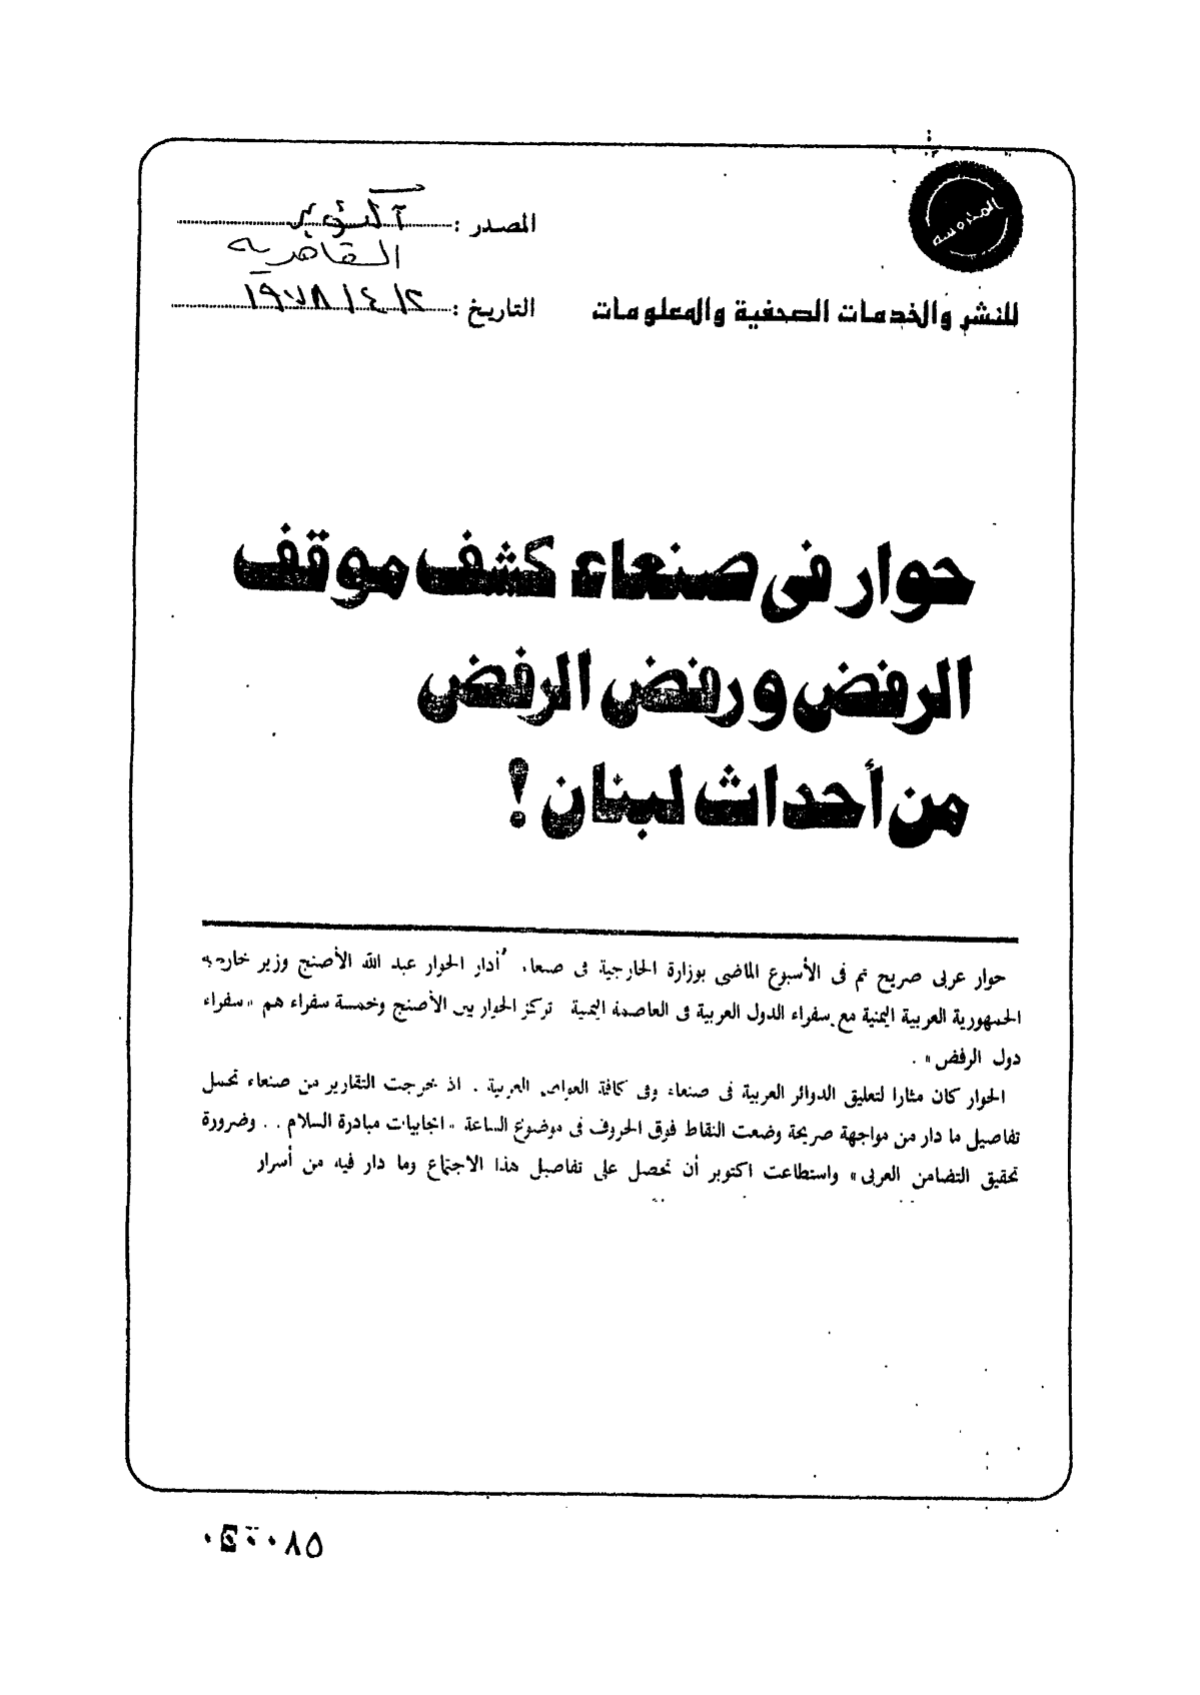 المحروسه
المصدر : أكتوبر
القاهريه
للنشر والخدمات الصحفية والمعلومات
التاريخ : ١٩٧٨/٤/٢
حوار فى صنعاء كشف موقف
الرفض ورفض الرفض
من أحداث لبنان !
حوار عربى صريح تم فى الأسبوع الماضى بوزارة الخارجية فى صنعاء. أدار الحوار عبد الله الأصنج وزير خارجية
الجمهورية العربية اليمنية مع سفراء الدول العربية فى العاصمة اليمنية تركز الحوار بين الأصنج وخمسة سفراء هم «سفراء
دول الرفض» .
الحوار كان مثارا لتعليق الدوائر العربية فى صنعاء وفى كافة العواصم العربية . اذ خرجت التقارير من صنعاء تحمل
تفاصيل ما دار من مواجهة صريحة وضعت النقاط فوق الحروف فى موضوع الساعة «ايجابيات مبادرة السلام . . وضرورة
تحقيق التضامن العربى» واستطاعت اكتوبر أن تحصل على تفاصيل هذا الاجتماع وما دار فيه من أسرار